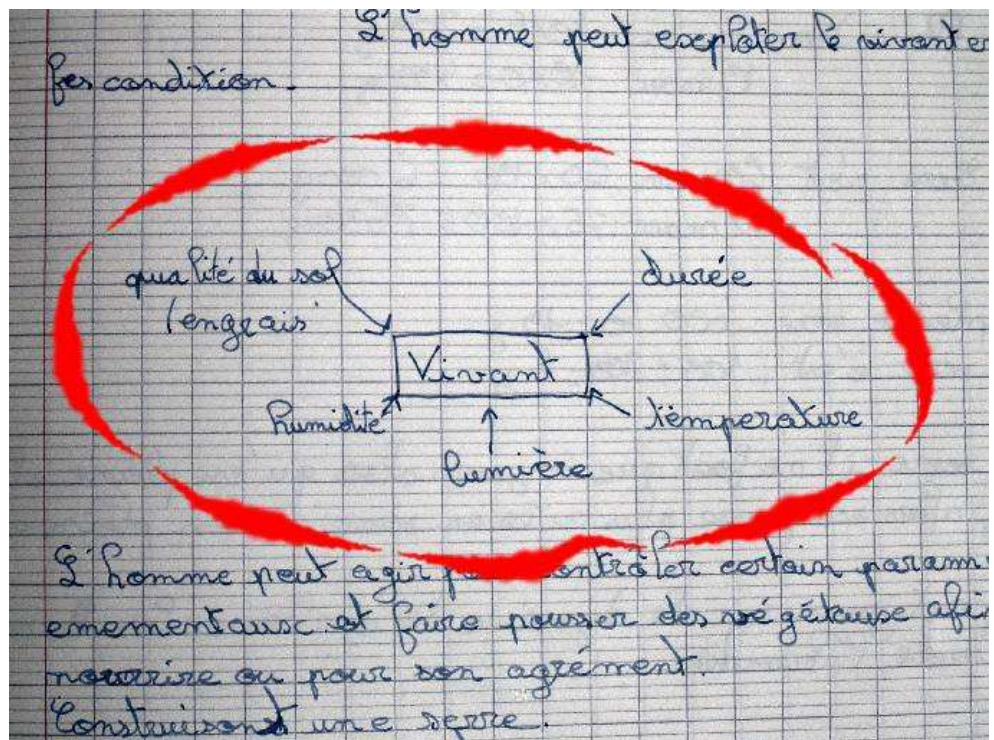 L'homme peut exeploter le vivant e
les condition.
qualité du sol
durée
/engrais
Vivant
humidité
température
lumière
L'homme peut agir contrôler certain param
emementausc et faire pousser des végétause afi
nourrire ou pour son agrément.
Construisont une serre.